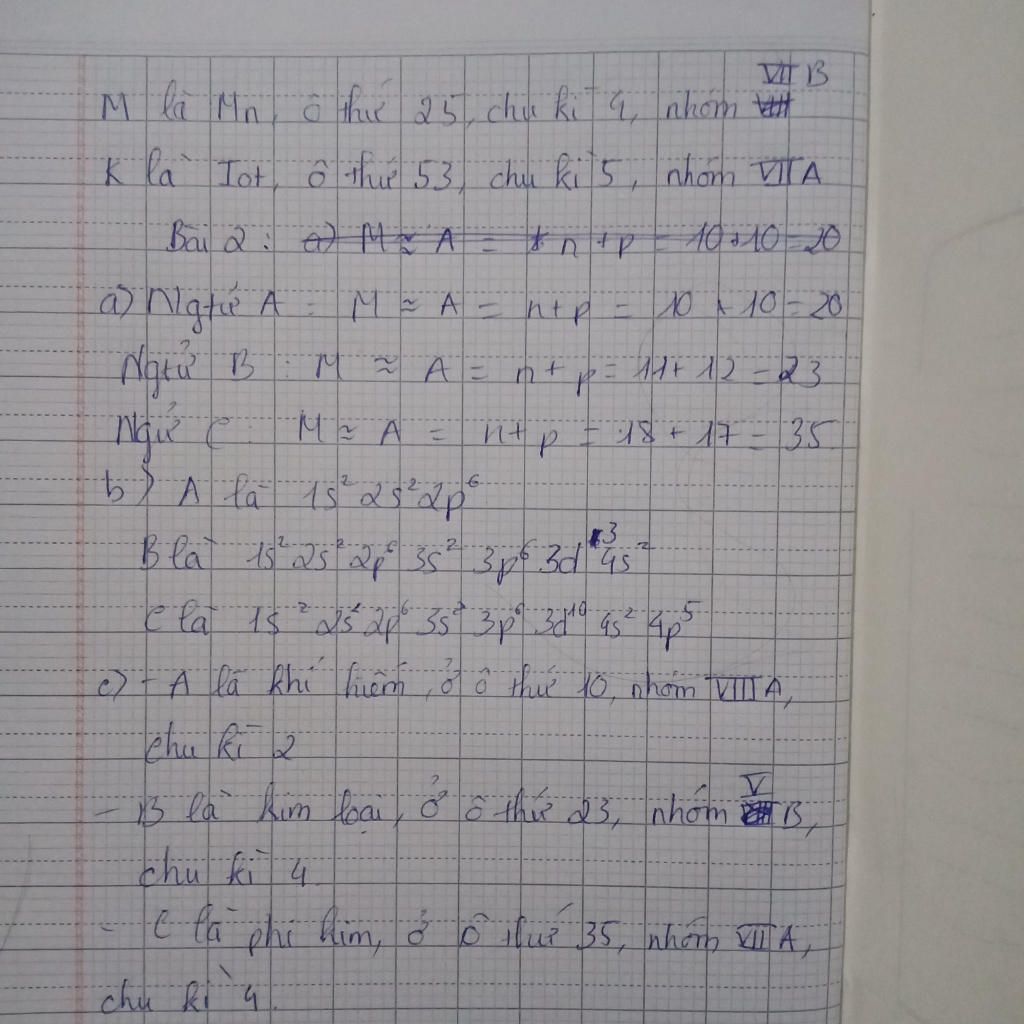 VII B
M là Mn, ô thứ 25, chu kì 4, nhóm
K là Iot, ô thứ 53, chu kì 5, nhóm VII A
Bài 2 : a) M ≈ A = n + p = 10 + 10 = 20
a) Ngtử A : M ≈ A = n + p = 10 + 10 = 20
Ngtử B : M ≈ A = n + p = 11 + 12 = 23
Ngử C : M ≈ A = n + p = 18 + 17 = 35
b) A là 1s² 2s² 2p⁶
B là 1s² 2s² 2p⁶ 3s² 3p⁶ 3d³ 4s²
C là 1s² 2s² 2p⁶ 3s² 3p⁶ 3d¹⁰ 4s² 4p⁵
c) - A là khí hiếm, ở ô thứ 10, nhóm VIII A,
chu kì 2
- B là kim loại, ở ô thứ 23, nhóm V B,
chu kì 4
- C là phi kim, ở ô thứ 35, nhóm VII A,
chu kì 4.